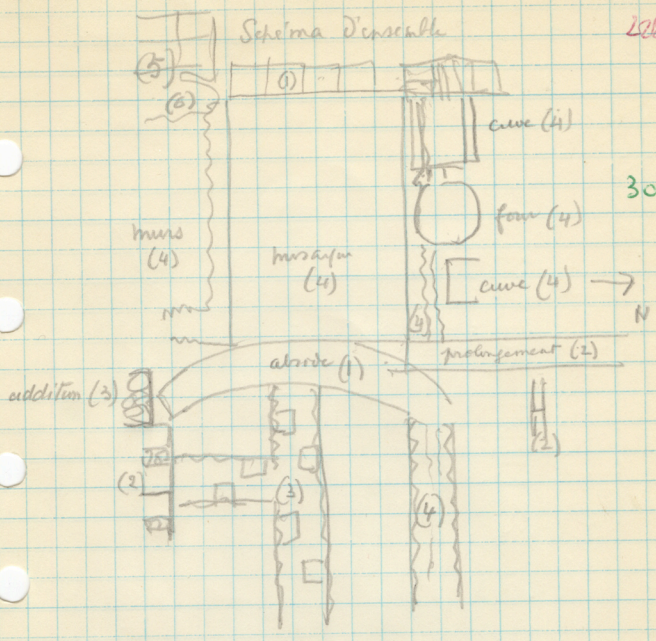 Schéma d'ensemble
(5)
(1)
(6)
cuve (4)
30
four (4)
murs
(4)
mosaïque
(4)
cuve (4)
N
(4)
prolongement (2)
abside (1)
addition (3)
(2)
(2)
(3)
(4)